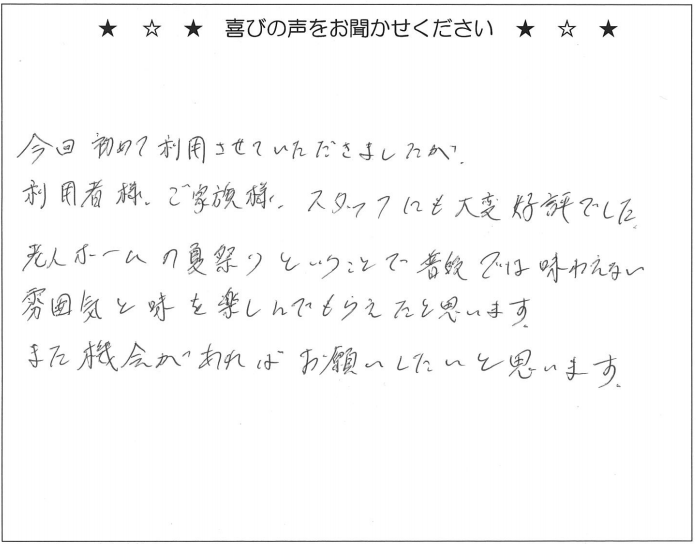 ★ ☆ ★ 喜びの声をお聞かせください ★ ☆ ★
今回初めて利用させていただきましたが、
利用者様、ご家族様、スタッフにも大変好評でした。
老人ホームの夏祭りということで普段では味わえない
雰囲気と味を楽しんでもらえたと思います。
また機会があればお願いしたいと思います。